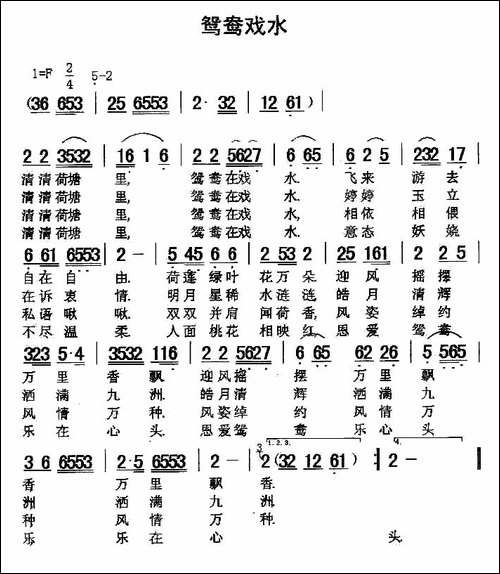 鸳鸯戏水
1=F 2/4 5-2
(36 653 | 25 6553 | 2· 32 | 12 61) |
2 2 3532 | 16 1 6 | 2 2 5627 | 6 65 | 6 2 5 | 232 17 |
清清荷塘 里, 鸳鸯在戏 水. 飞来 游去
清清荷塘 里, 鸳鸯在戏 水. 婷婷 玉立
清清荷塘 里, 鸳鸯在戏 水. 相依 相偎
清清荷塘 里, 鸳鸯在戏 水. 意态 妖娆
6 61 6553 | 2 - | 5 45 6 6 | 2 53 2 | 25 161 | 2 2 5 |
自在自 由. 荷蓬绿叶 花万朵. 迎风 摇摆
在诉衷 情. 明月星稀 水涟涟 皓月 清辉
私语啾 啾. 双双并肩 闻荷香, 风姿 绰约
不尽温 柔. 人面桃花 相映红. 恩爱 鸳鸯
323 5·4 | 3532 116 | 2 2 5627 | 6 65 62 26 | 5 565 |
万里 香飘 迎风摇 摆 万里 飘
洒满 九洲. 皓月清 辉 洒满 九
风情 万种. 风姿绰 约 风情 万
乐在 心头. 恩爱鸳 鸯 乐在 心
3 6 6553 | 2·5 6553 | 2 - | 2 (32 12 61) :| 2 - ||
1.2.3. 4.
香 万里 飘香.
洲 洒满 九洲.
种 风情 万种.
乐 乐在 心 头.